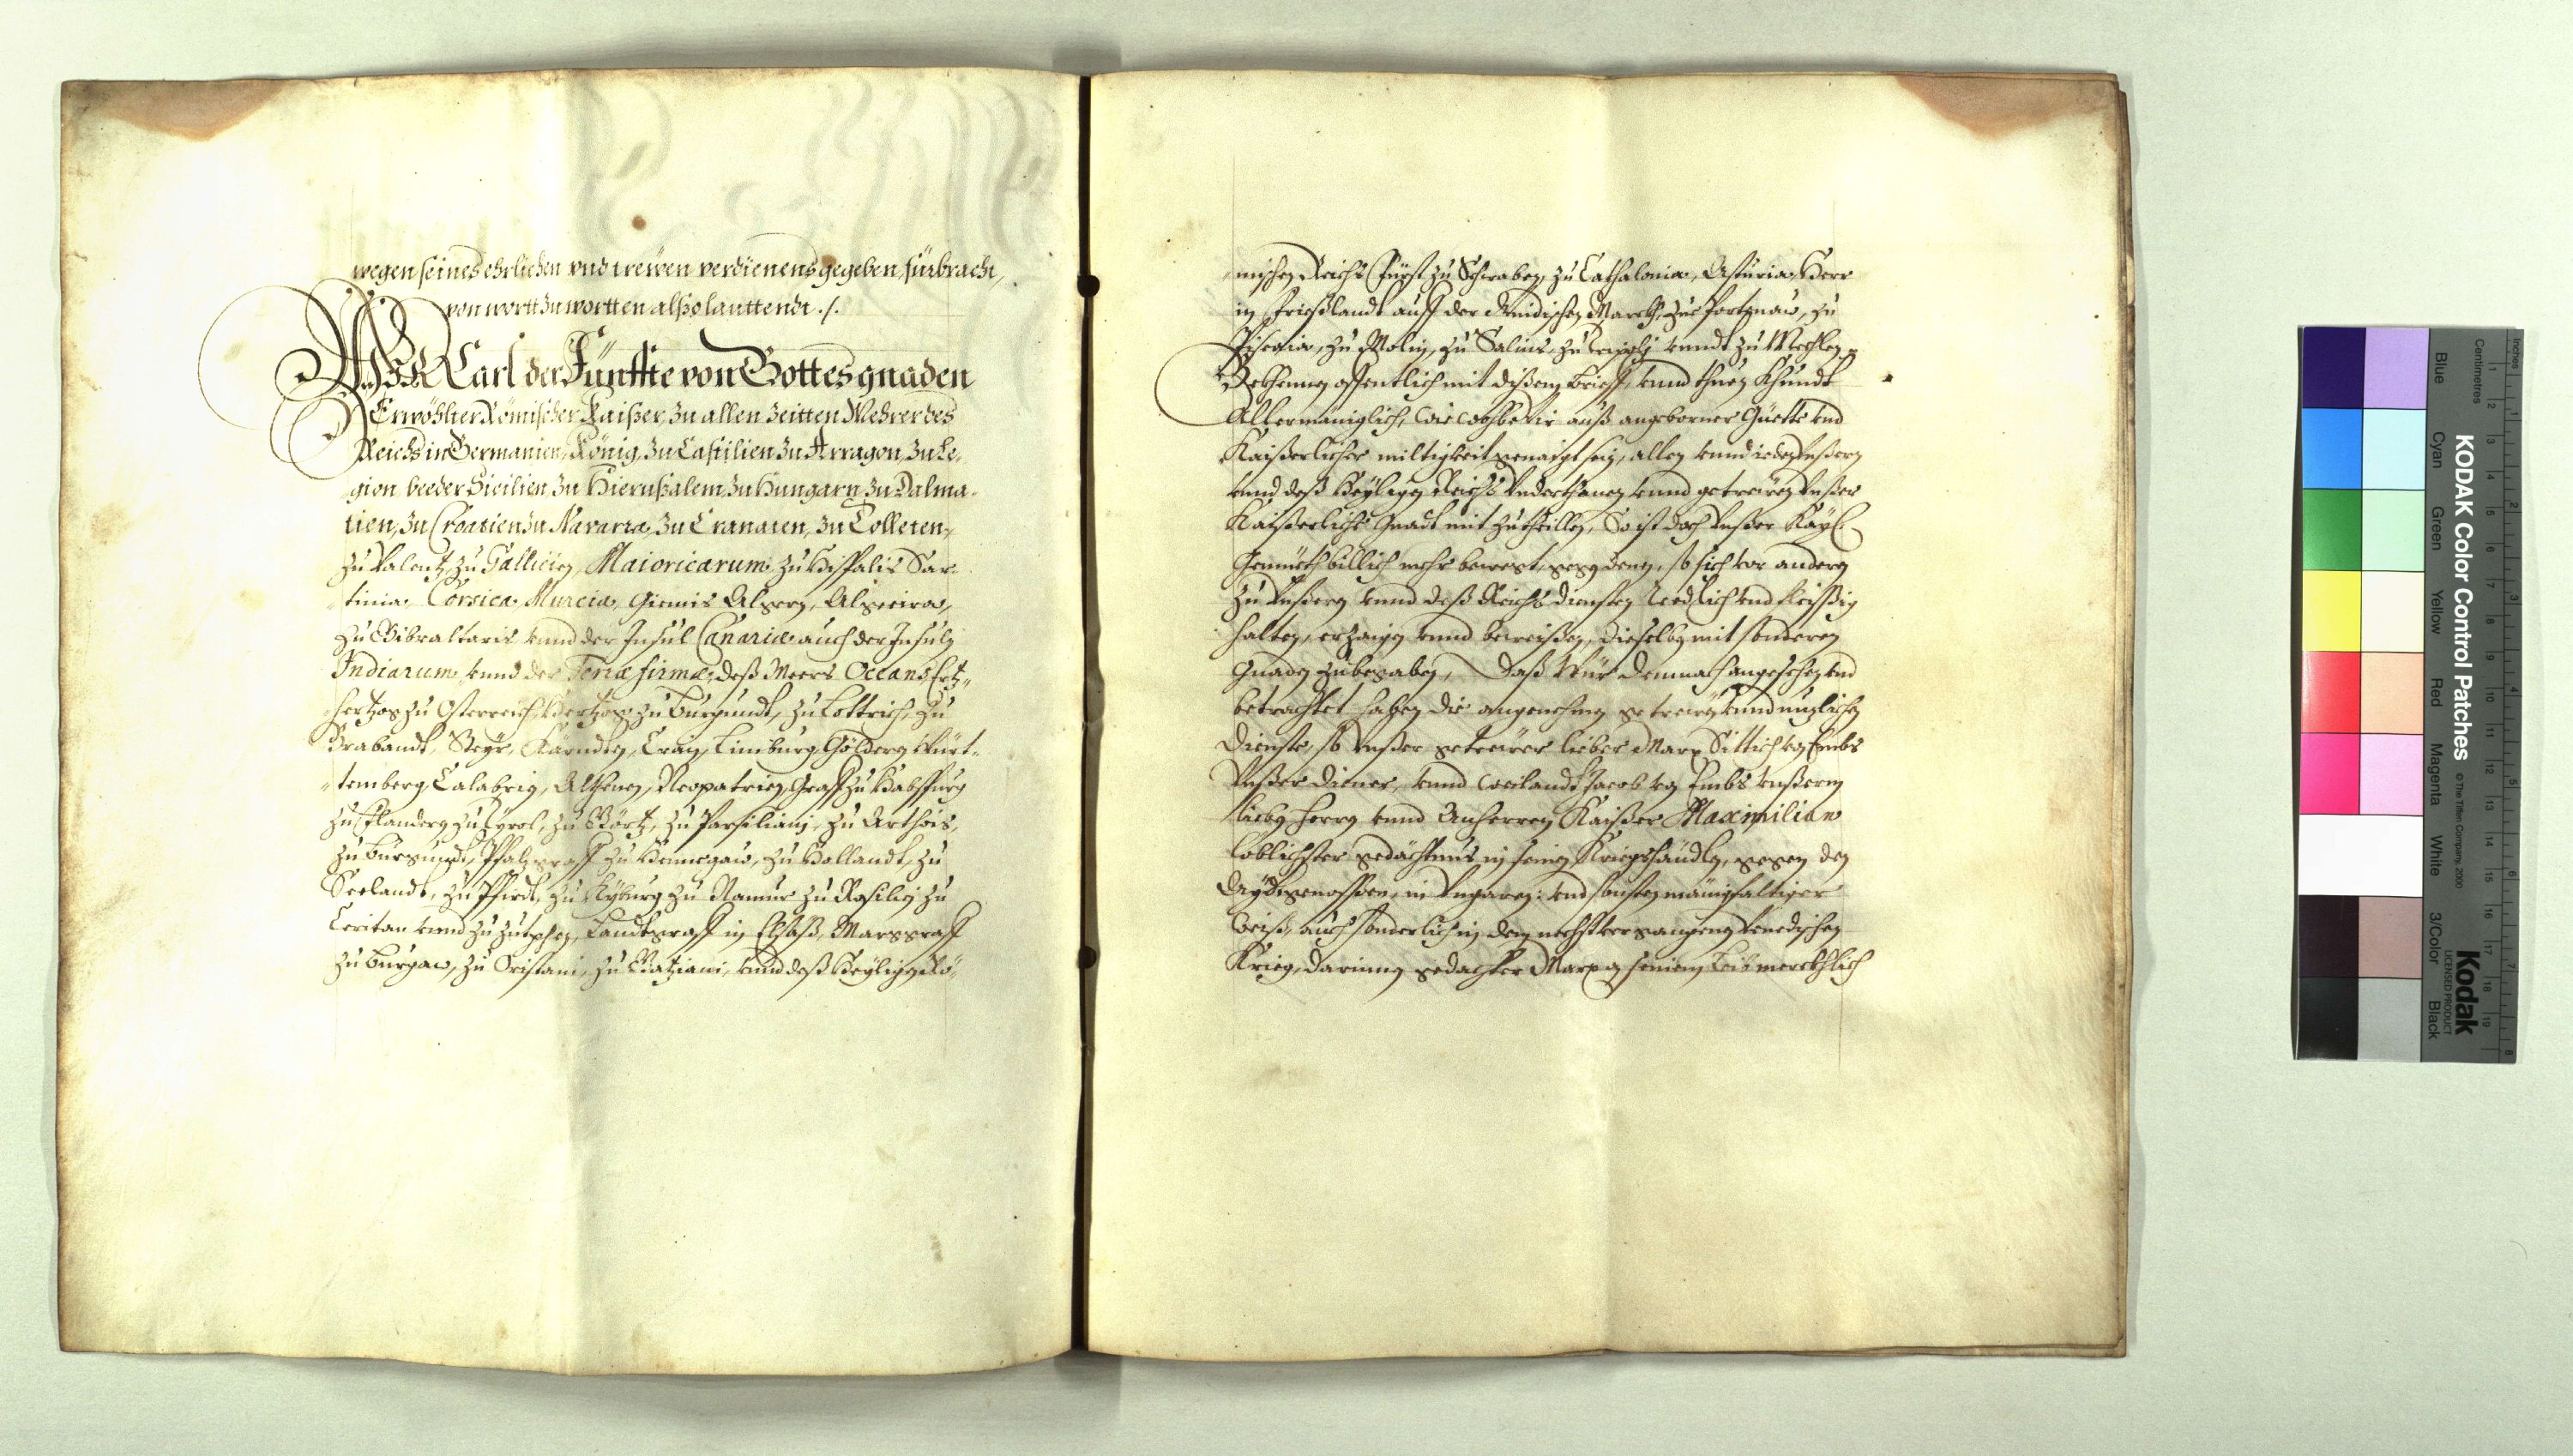 wegen seines ehrlichen vnd trewen verdienens gegeben, fürbracht,
von wortt zu wortten alßo lauttendt ./.
WIR Carl der Fünffte von Gottes gnaden
Erwöhlter Römischer Kaißer, zu allen zeitten Mehrer des
Reichs in Germanien, König, zu Castilien zu Arragon, zu Le-
gion beeder Sicilien, zu Hierußalem, zu Hungarn, zu Dalma-
tien, zu Croatien zu Navarra, zu Cranaten, zu Tolleten,
zu Valentz, zu Gallicien, Maioricarum, zu Hispalis Sar-
tinia, Corsica, Murcia, Giennis Algern, Algecira,
zu Gibraltaris vnnd der Insul Canariæ auch der Insuln
Indiarum, vnnd der Terræ firmæ, deß Meers Oceans Ertz-
hertzog zu Osterreich, Hertzog zu Burgundt, zu Lottrich, zu
Brabandt, Steyr, Kärndten, Crain, Limburg, Göldern, Würt-
temberg, Calabrien, Athenen, Neopatrien, Graff zu Habspurg
zu Flandern, zu Tyrol, zu Görtz, zu Parsiliani, zu Arthois,
zu Burgundt, Pfaltzgraff zu Hennegaw, zu Hollandt, zu
Seelandt, zu Pfirdt, zu Kyburg zu Namur zu Rosilien zu
Ceritan vnnd zu Zutphen, Landtgraff in Elsaß, Marggraff
zu Burgaw, zu Oristani, zu Gotziani, vnnd deß Heyligen Rö-
mischen Reichs Fürst zu Schwaben, zu Cathalonia, Asturia, Herr
in Frießlandt auff der Windischen March, zue Portenaw, zu
Biscaia, zu Molin, zu Salins, zu Trippli vnndt zu Mechlen
Bekhennen offentlich mit dißem Brieff, vnnd thuen Khundt
Allermäniglich, wie wohl wir auß angeborner Güette vnd
Kaißerlicher miltigkeit genaigt sein, allen vnnd ieden vnßern
vnnd deß Heyligen Reichs vnderthanen vnnd getrewen vnßer
Kaißerliche Gnadt mit zutheillen, So ist doch vnßer Kay:
Gemüeth billich mehr bewegt, gegen denen, so sich vor andern
zu vnßern vnnd deß Reichs diensten redlich vnd fleissig
halten, erzaigen vnnd beweißen, dieselben mit sondern
Gnaden zu begaben, Daß Wür demnach angesehen vnd
betrachtet haben die angenehmen getrewen vnnd nuzlichen
Dienste, so vnßer getrewer lieber Marx Sittich von Embs
vnßer Diener, vnnd weilandt Jacob von Embs vnßerm
lieben Herrn vnnd Anherren Kaißer Maximilian
loblichster gedächtnus in seinen Kriegshändlen, gegen den
Aydtgenossen, in Vngarn: vnd sonsten mänigfaltiger
weiß, auch sonderlich in dem nechst vergangenen Venedischen
Krieg, darinnen gedachter Marx an seinem Leib merckhlich
Blue Cyan Green Yellow Red Magenta White 3/Color Black
KODAK Color Control Patches © The Tiffen Company, 2000
Kodak
LICENSED PRODUCT
Centimetres
Inches